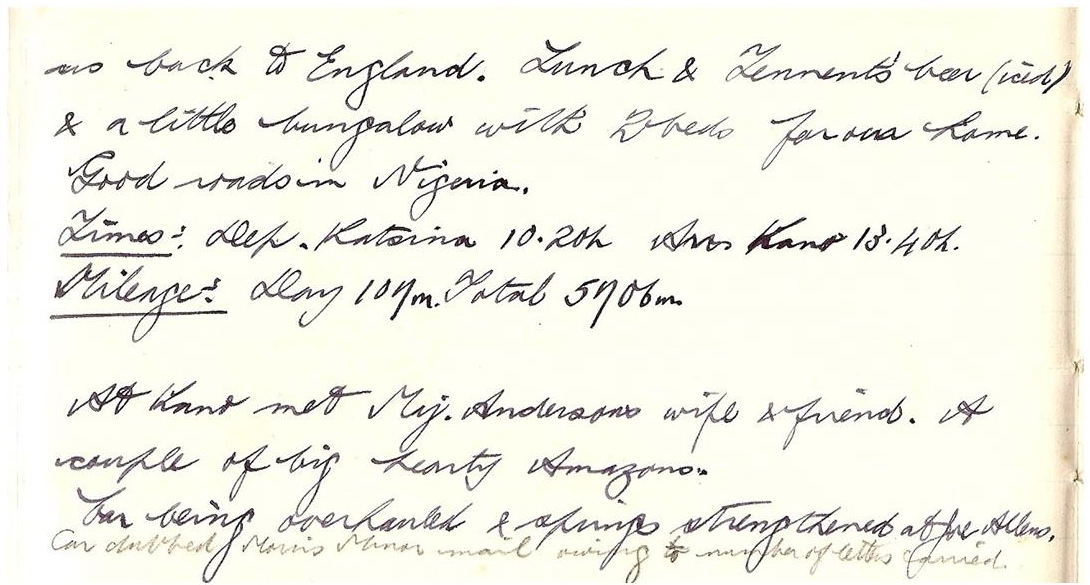 us back to England. Lunch & Tennent's beer (iced)
& a little bungalow with 2 beds for our home.
Good roads in Nigeria.
Times: Dep. Katsina 10.20h Arr. Kano 13.40h.
Mileage: Day 107m. Total 5706m.
At Kano met Maj. Andersons wife & friend. A
couple of big hearty Amazons.
Car being overhauled & springs strengthened at Joe Allens.
Car dubbed Morris Minor mail owing to number of letters carried.